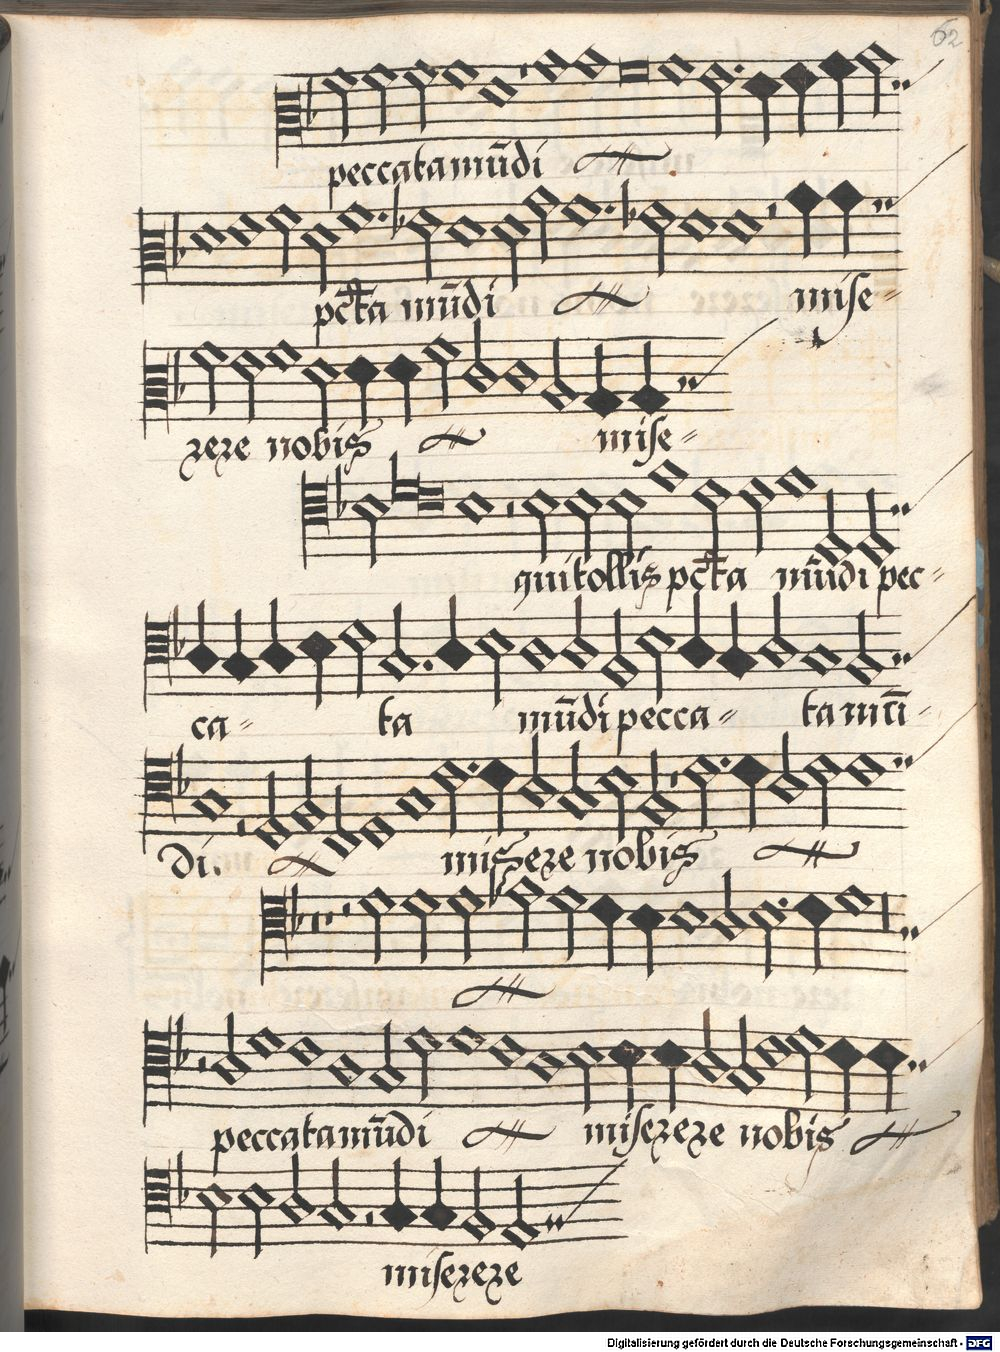 62
peccata mūdi
pc̄ta mūdi mise-
rere nobis mise-
qui tollis pc̄ta mūdi pec-
ca- ta mūdi pecca- ta mū-
di. miserere nobis
peccata mūdi miserere nobis
miserere
Digitalisierung gefördert durch die Deutsche Forschungsgemeinschaft - DFG